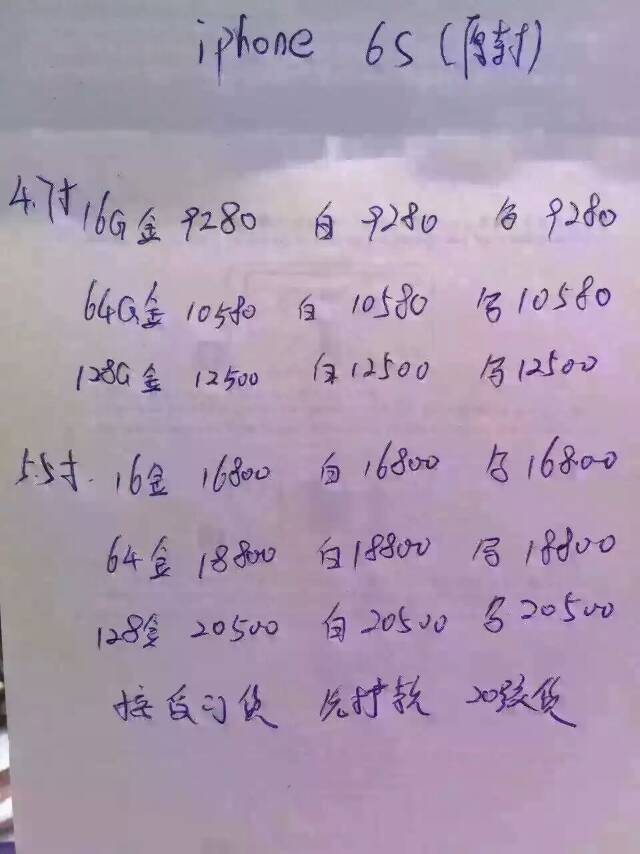 iphone 6S (原封)
4.7寸 16G金 9280 白 9280 9280
64G金 10580 白 10580 10580
128G金 12500 白 12500 12500
5.5寸. 16金 16800 白 16800 16800
64金 18800 白 18800 18800
128金 20500 白 20500 20500
接受订货 先打款 20号货